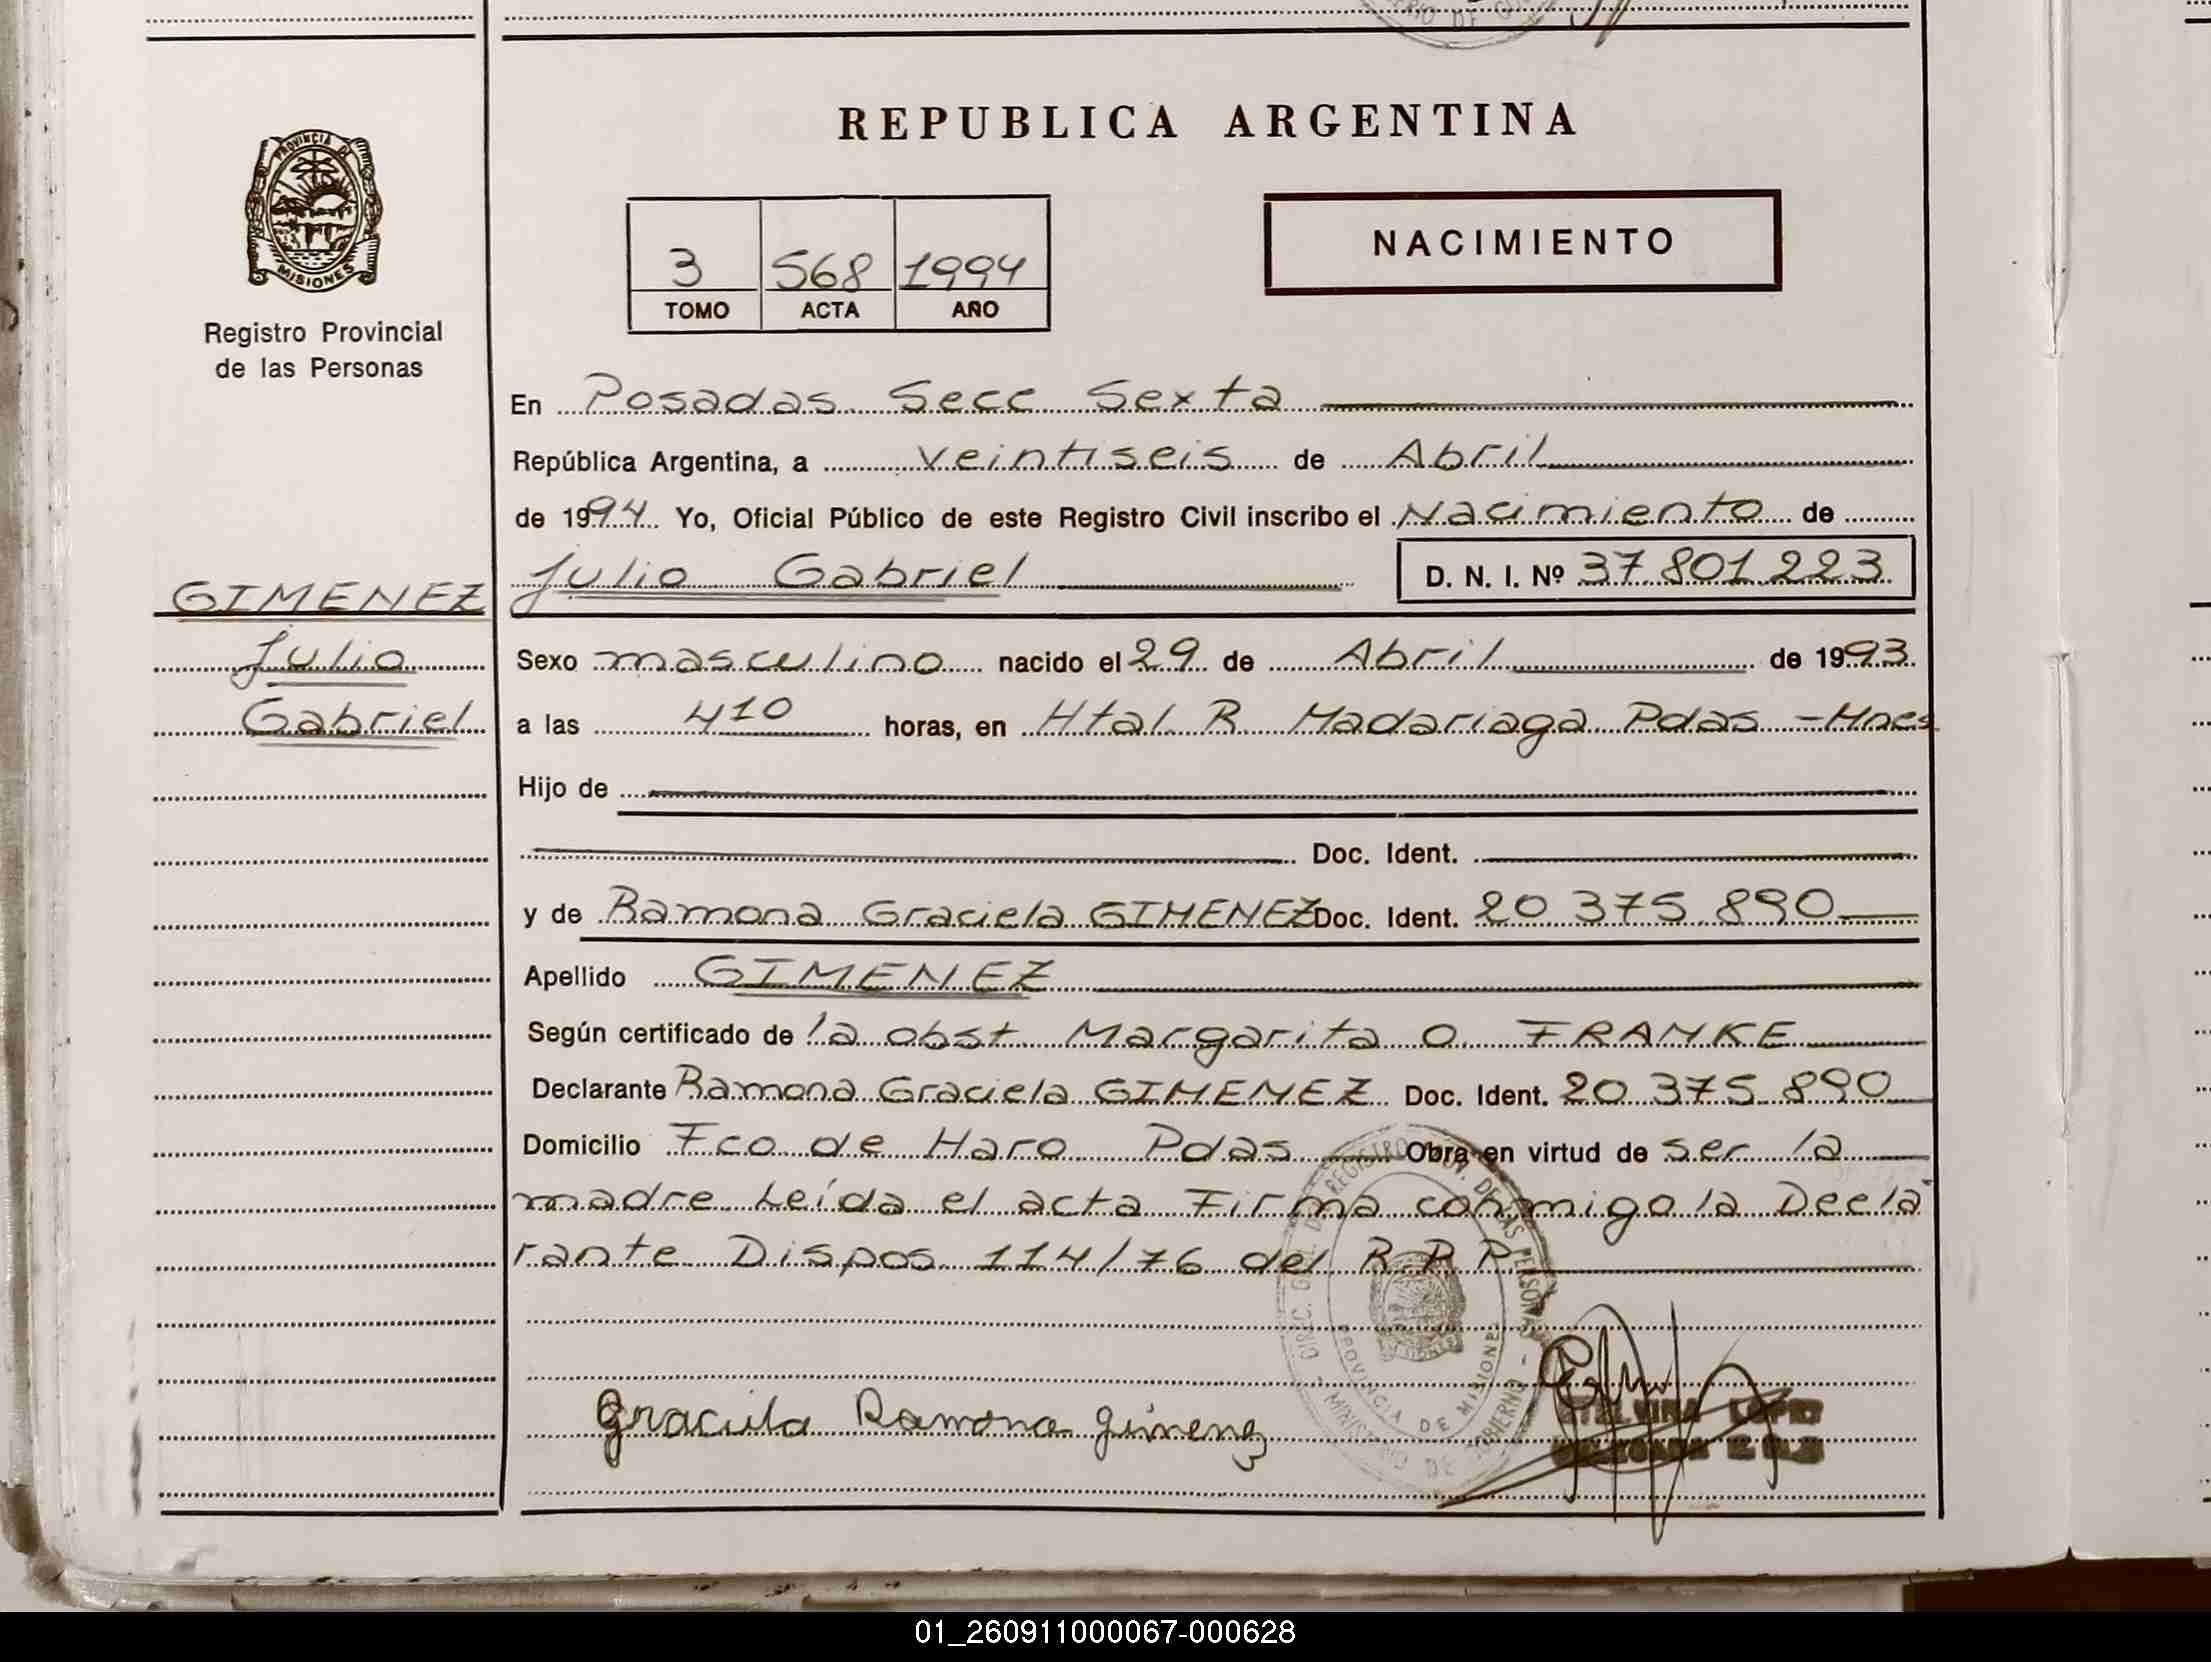 REPUBLICA ARGENTINA
PROVINCIA DE
MISIONES
Registro Provincial
de las Personas
3 568 1994
TOMO ACTA AÑO
NACIMIENTO
En Posadas Secc Sexta
República Argentina, a veintiseis de Abril
de 1994. Yo, Oficial Público de este Registro Civil inscribo el Nacimiento de
Julio Gabriel D. N. I. Nº 37.801.223
GIMENEZ
Julio
Gabriel
Sexo masculino nacido el 29 de Abril de 1993
a las 4 10 horas, en Htal R Madariaga Pdas - Mnes
Hijo de
Doc. Ident.
y de Ramona Graciela GIMENEZ Doc. Ident. 20 375 890
Apellido GIMENEZ
Según certificado de la obst Margarita O. FRANKE
Declarante Ramona Graciela GIMENEZ Doc. Ident. 20 375 890
Domicilio Fco de Haro Pdas Obra en virtud de ser la
madre Leída el acta Firma conmigo la Decla
rante Dispos 114/76 del R P P
DE LAS PERSONAS
PROVINCIA DE MISIONES
Graciela Ramona Gimenez
LOPEZ
01_260911000067-000628